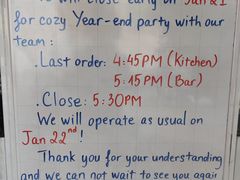 will close early on Jan 21
for cozy Year-end party with our
team :
. Last order: 4:45PM (Kitchen)
5:15PM (Bar)
. Close: 5:30PM
We will operate as usual on
Jan 22nd!
Thank you for your understanding
and we can not wait to see you again